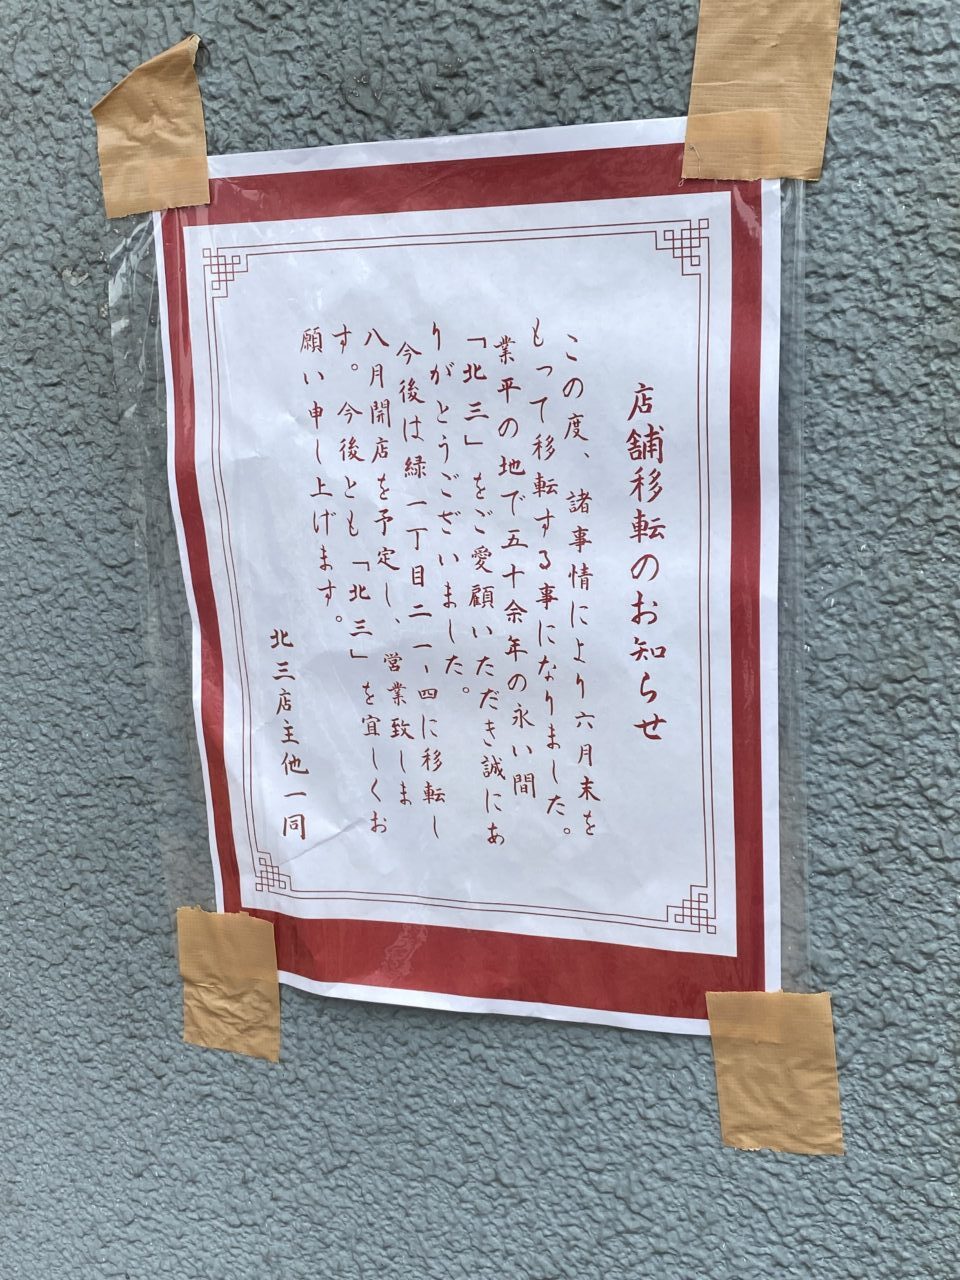 店舗移転のお知らせ
この度、諸事情により六月末を
もって移転する事になりました。
業平の地で五十余年の永い間
「北三」をご愛顧いただき誠にあ
りがとうございました。
今後は緑一丁目二一、四に移転し
八月開店を予定し、営業致しま
す。今後とも「北三」を宜しくお
願い申し上げます。
北三店主他一同